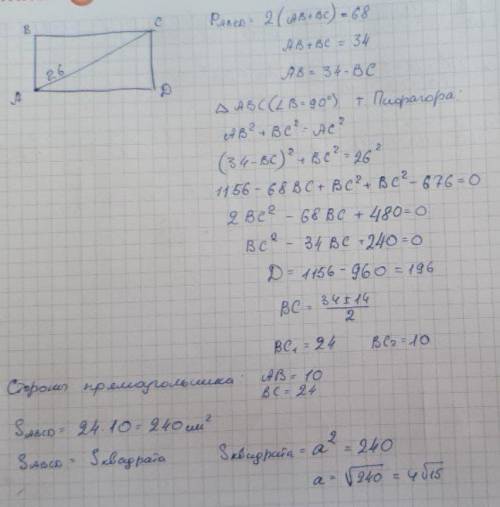 B C
26
A D
P_ABCD = 2(AB+BC) = 68
AB+BC = 34
AB = 34-BC
△ ABC (∠B=90°) т. Пифагора:
AB² + BC² = AC²
(34-BC)² + BC² = 26²
1156 - 68BC + BC² + BC² - 676 = 0
2BC² - 68BC + 480 = 0
BC² - 34BC + 240 = 0
D = 1156 - 960 = 196
BC = (34±14)/2
BC₁ = 24 BC₂ = 10
Стороны прямоугольника: AB = 10
BC = 24
S_ABCD = 24·10 = 240 см²
S_ABCD = S квадрата S квадрата = a² = 240
a = √240 = 4√15